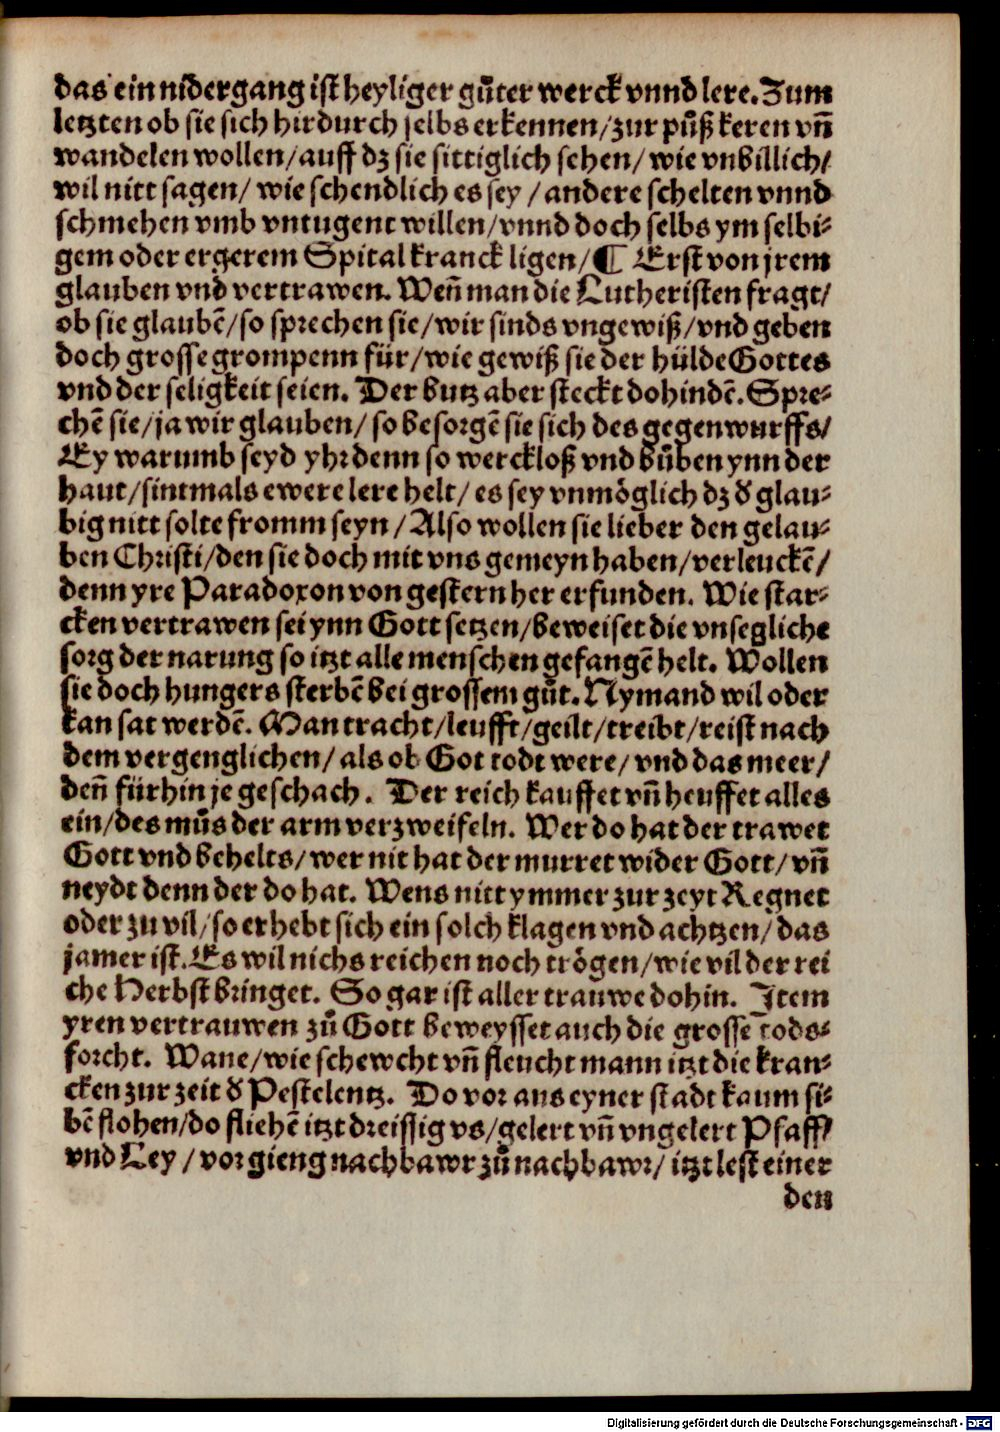 das ein nidergang ist heyliger gůter werck vnnd lere. Zum
letzten ob sie sich hirdurch selbs erkennen/zur půß keren vñ
wandelen wollen/auff dz sie sittiglich sehen/ wie vnbillich/
wil nitt sagen/ wie schendlich es sey / andere schelten vnnd
schmehen vmb vntugent willen/vnnd doch selbs ym selbi-
gem oder ergerem Spital kranck ligen/¶ Erst von jrem
glauben vnd vertrawen. Weñ man die Lutheristen fragt/
ob sie glaubẽ/so sprechen sie/wir sinds vngewiß/vnd geben
doch grosse grompenn für/wie gewiß sie der hülde Gottes
vnd der seligkeit seien. Der butz aber steckt dohindẽ. Spre-
chẽ sie/ja wir glauben/ so besorgẽ sie sich des gegenwurffs/
Ey warumb seyd yhr denn so werckloß vnd bůben ynn der
haut/sintmals ewere lere helt/ es sey vnmöglich dz đ glau-
big nitt solte fromm seyn/Also wollen sie lieber den gelau-
ben Christi/den sie doch mit vns gemeyn haben/verleuckẽ/
denn yre Paradoxon von gestern her erfunden. Wie star-
cken vertrawen sei ynn Gott setzen/beweiset die vnsegliche
sorg der narung so itzt alle menschen gefangẽ helt. Wollen
sie doch hungers sterbẽ bei grossem gůt. Nymand wil oder
kan sat werdẽ. Man tracht/leufft/geilt/treibt/reist nach
dem vergenglichen/ als ob Got todt were/ vnd das meer/
deñ fürhin je geschach. Der reich kauffet vñ heuffet alles
ein/des můs der arm verzweifeln. Wer do hat der trawet
Gott vnd behelts/wer nit hat der murret wider Gott/ vñ
neydt denn der do hat. Wens nitt ymmer zur zeyt Regnet
oder zu vil/so erhebt sich ein solch klagen vnd achtzen/ das
jamer ist. Es wil nichs reichen noch trögen/wie vil der rei
che Herbst bringet. So gar ist aller trauwe dohin. Item
yren vertrauwen zů Gott beweysset auch die grosse tods-
forcht. Wane/wie schewcht vñ fleucht mann itzt die kran-
cken zur zeit đ Pestelentz. Do vor aus eyner stadt kaum si-
bẽ flohen/do fliehẽ itzt dreissig vs/gelert vñ vngelert Pfaff/
vnd Ley / vor gieng nachbawr zů nachbawr/ itzt lest einer
den
Digitalisierung gefördert durch die Deutsche Forschungsgemeinschaft - DFG